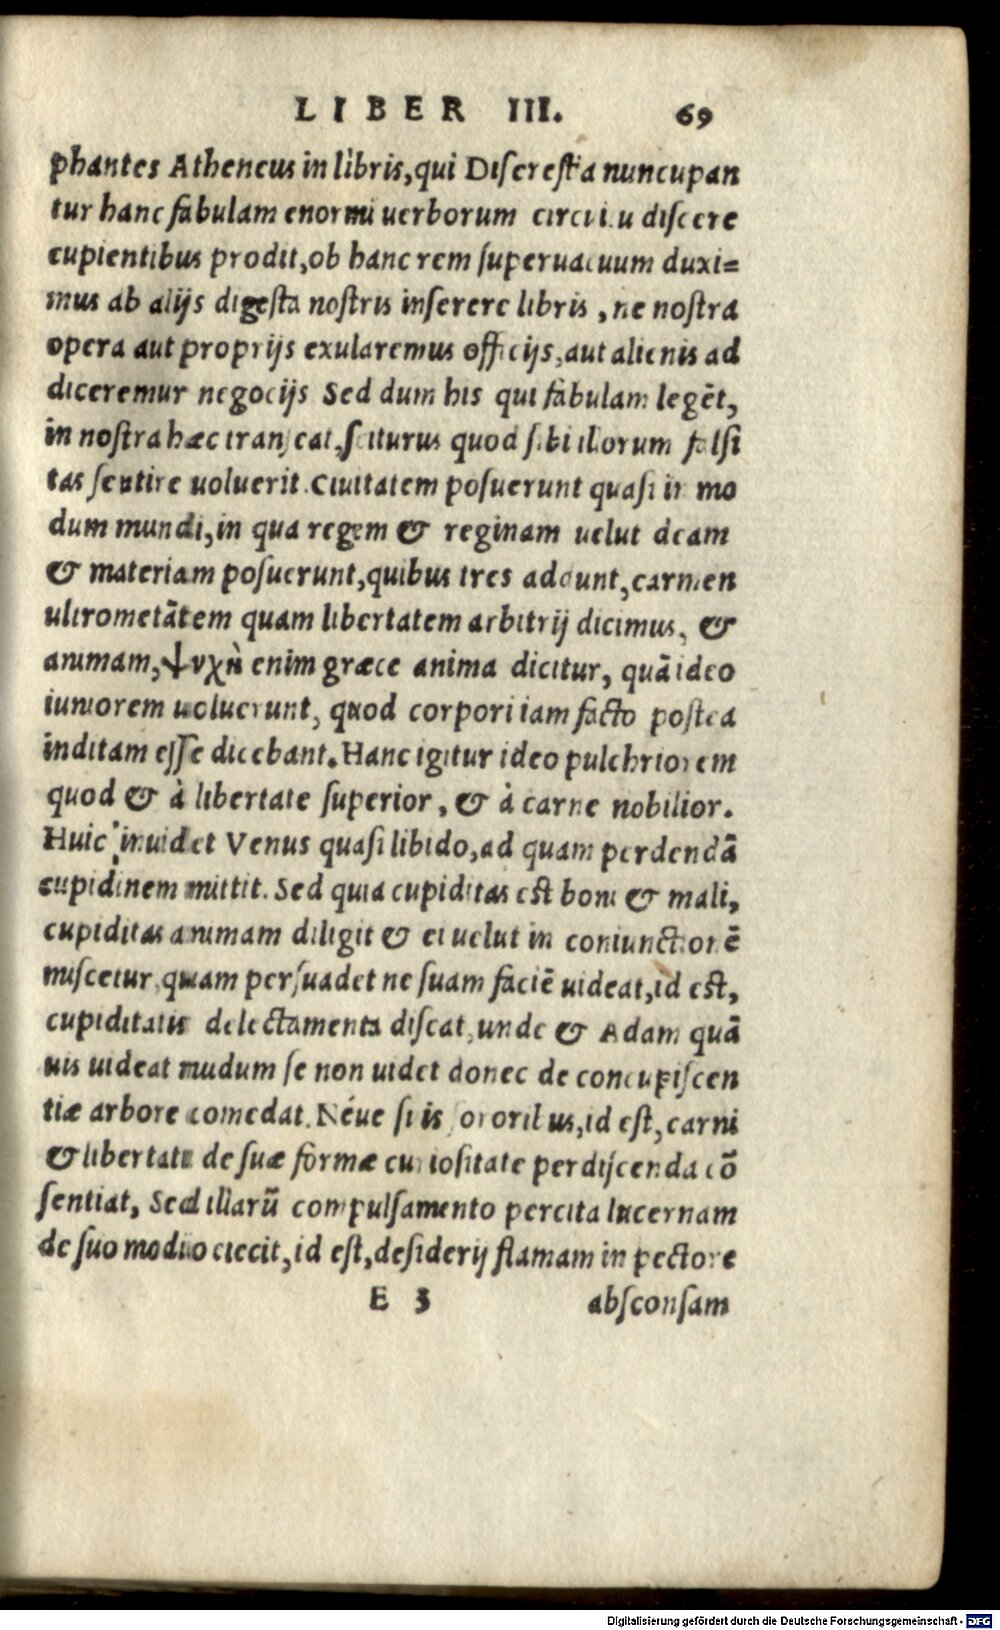 LIBER III. 69
phantes Atheneus in libris, qui Discrestia nuncupan
tur hanc fabulam enormi uerborum circuitu discere
cupientibus prodit, ob hanc rem superuacuum duxi=
mus ab alijs digesta nostris inserere libris, ne nostra
opera aut proprijs exularemus officijs, aut alienis ad
diceremur negocijs Sed dum his qui fabulam legēt,
in nostra hæc transcat, sciturus quod sibi illorum falsi
tas sentire uoluerit. Ciuitatem posuerunt quasi in mo
dum mundi, in qua regem & reginam uelut deam
& materiam posuerunt, quibus tres addunt, carmen
ultrometātem quam libertatem arbitrij dicimus, &
animam, ψυχὴ enim græce anima dicitur, quā ideo
iuniorem uoluerunt, quod corpori iam facto postea
inditam esse dicebant. Hanc igitur ideo pulchriorem
quod & à libertate superior, & à carne nobilior.
Huic inuidet Venus quasi libido, ad quam perdendā
cupidinem mittit. Sed quia cupiditas est boni & mali,
cupiditas animam diligit & ei uelut in coniunctionē
miscetur, quam persuadet ne suam faciē uideat, id est,
cupiditatis delectamenta discat, unde & Adam quā
uis uideat nudum se non uidet donec de concupiscen
tiæ arbore comedat. Néue suis sororibus, id est, carni
& libertati de suæ formæ curiositate perdiscenda cō
sentiat, Sed illarū compulsamento percita lucernam
de suo modio eiecit, id est, desiderij flamam in pectore
E 3 absconsam
Digitalisierung gefördert durch die Deutsche Forschungsgemeinschaft - DFG